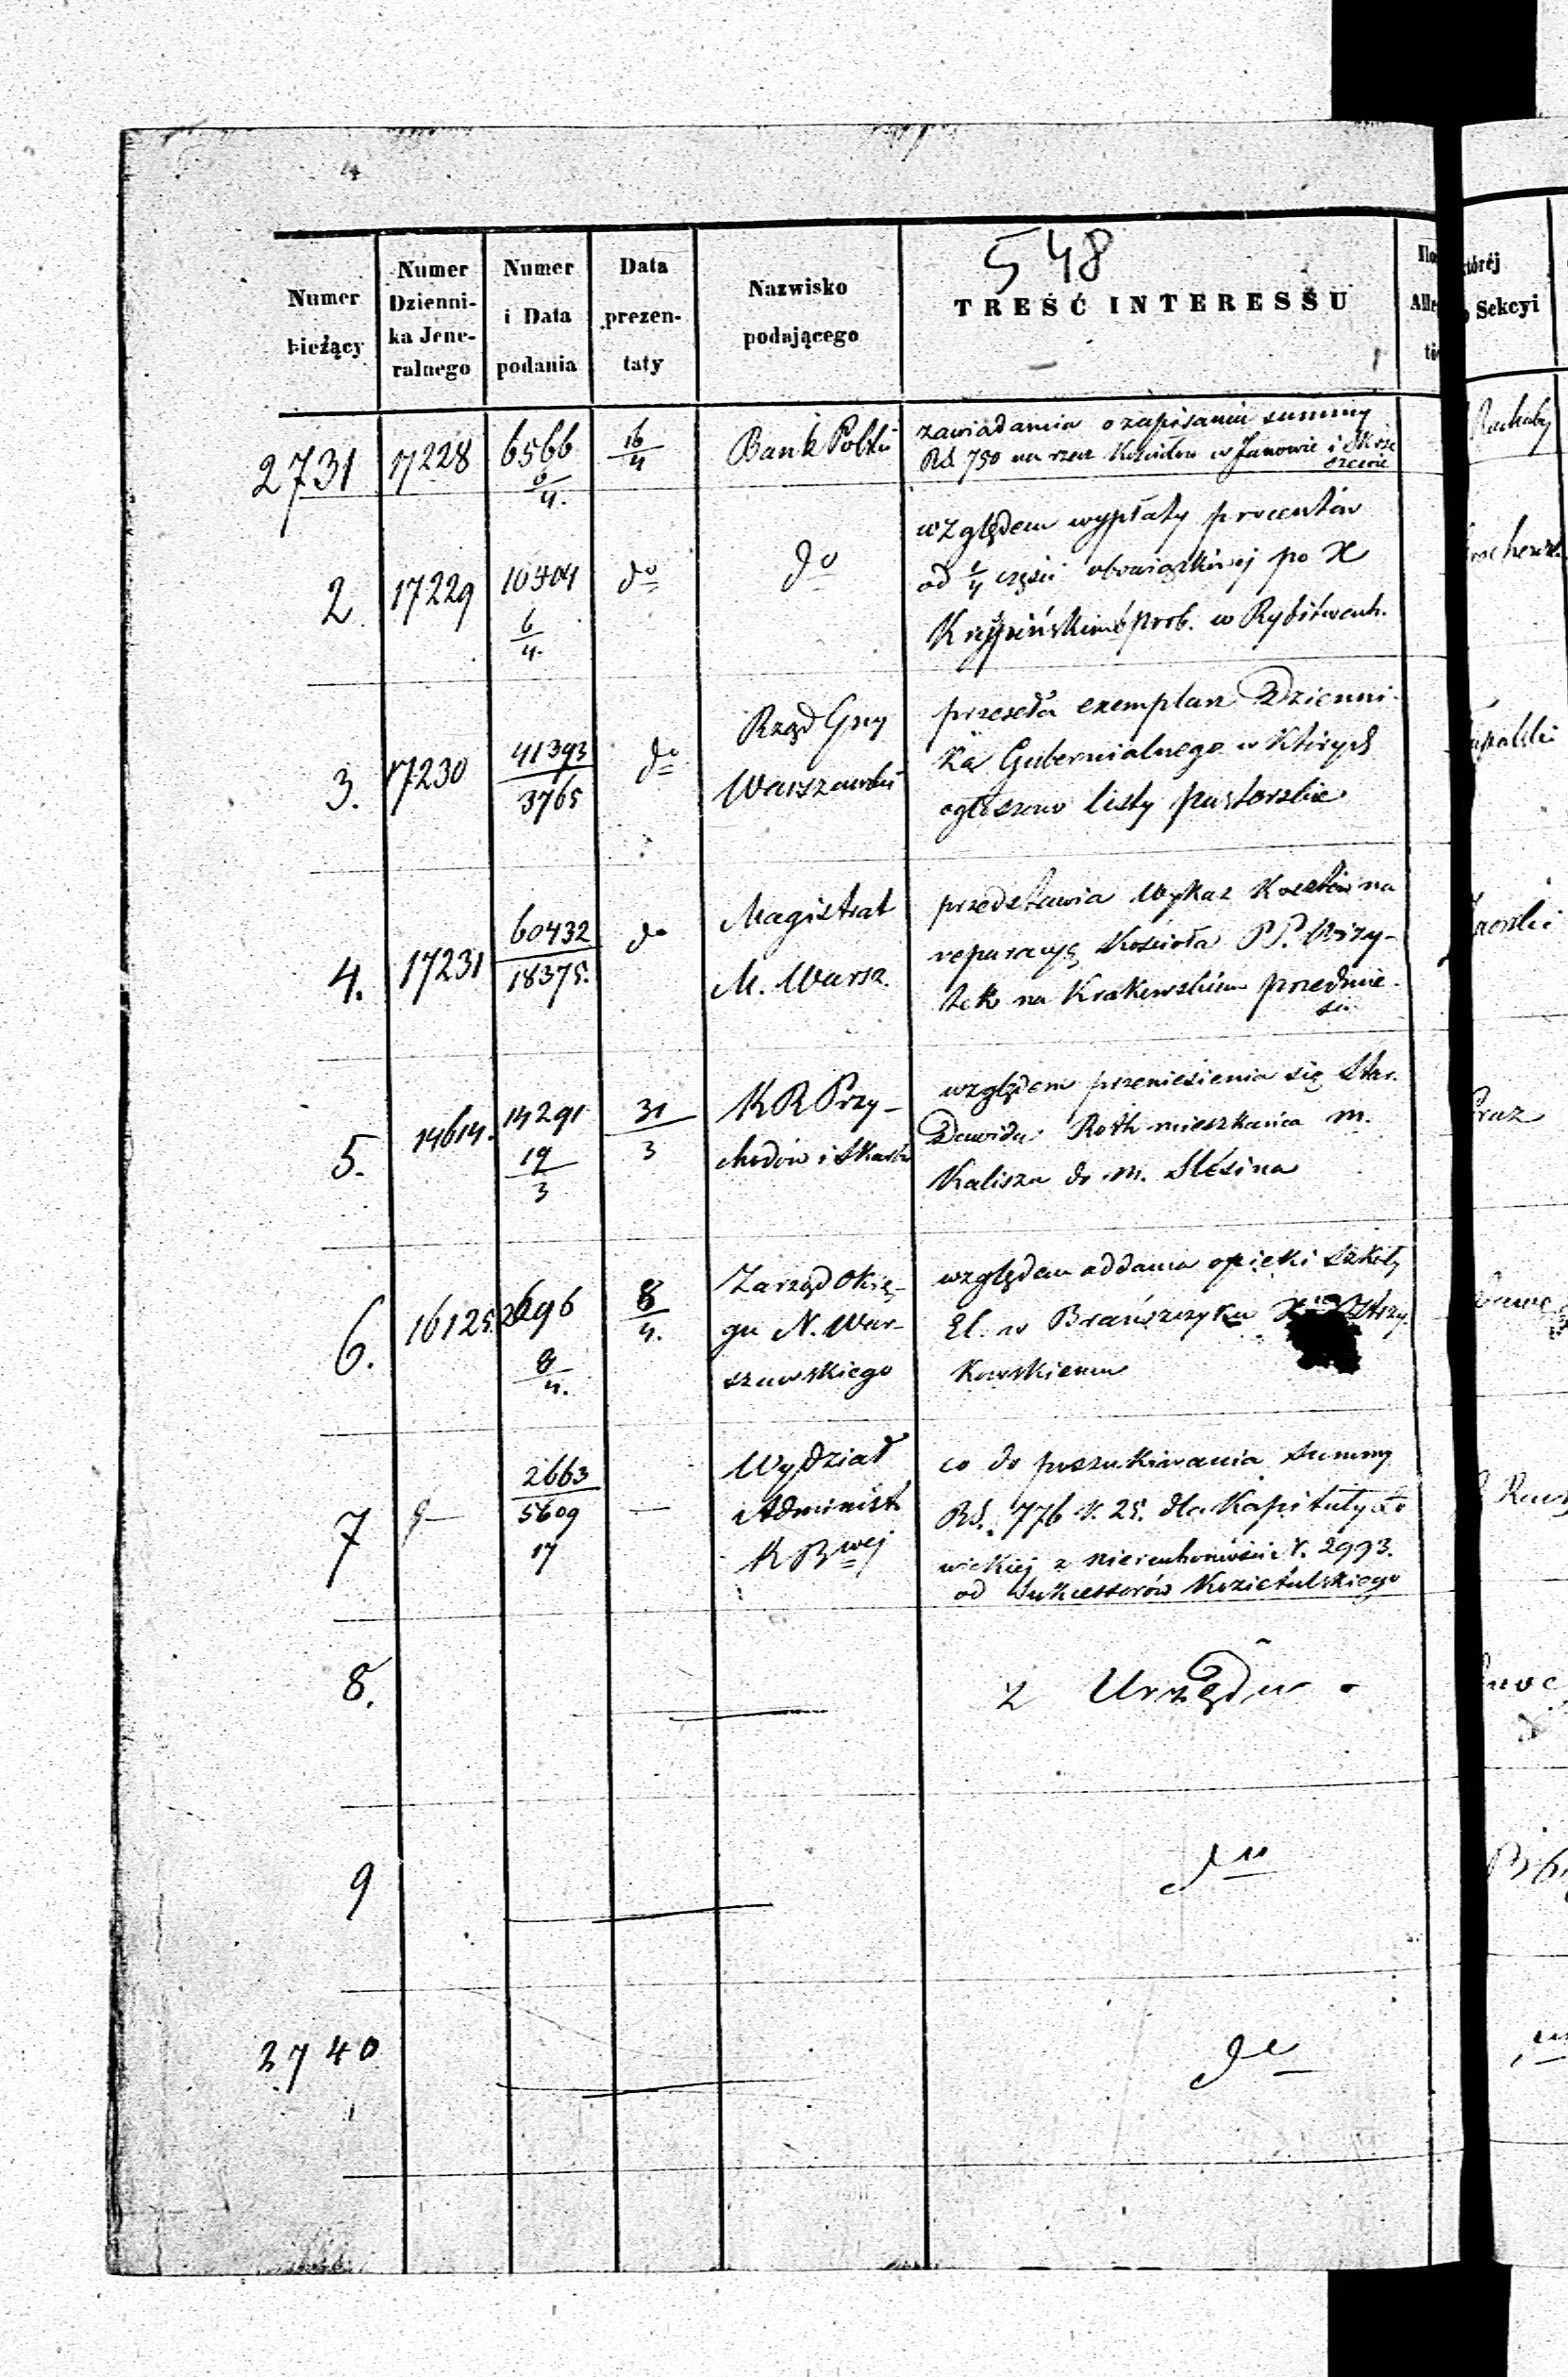 548
Numer bieżący
Numer Dzienni-ka Jene-ralnego
Numer i Data podania
Data prezen-taty
Nazwisko podającego
TREŚĆ INTERESSU
Sekcyi
2731 17228 6566 6/4. 16/4 Bank Polski
zawiadamia o zapisaniu summy
RS 750 na rzecz Kościołów w Janowie i Skrze
szewie
2 17229 10404 6/4. do do
względem wypłaty procentów
od 1/4 części obowiązkowej po X
prob. w Rybitwach.
3. 17230 41393/3765 do Rząd Gny
Warszawski
przeseła exemplarz Dzienni-
ka Gubernialnego w których
ogłoszono listy pasterskie
4. 17231 60432/18375. do Magistrat
M. Warsz.
przedstawia Wykaz Kosztów na
reparacyę Kościoła PP. Wizy-
tek na Krakowskiem przedmie-
ściu
5. 14614. 14291 19/3 31/3 KR Przy-
chodów i Skarbu
względem przeniesienia się Star.
Dawida Roth mieszkańca m.
Kalisza do m. Ślesina
6. 16125. 2696 8/4. 8/4. Zarząd Okrę-
gu N. War-
szawskiego
względem oddania opieki szkoły
El. w Brańszczyku
kowskiemu
7 2663/5609 17 — Wydział
Administ.
K R wej
co do poszukiwania summy
RS. 776 k. 25. dla Kapituły Ło
wickiej z nieruchomości N. 2993.
od Sukcessorów Kozietulskiego
8. z Urzędu
9 do
2740 do